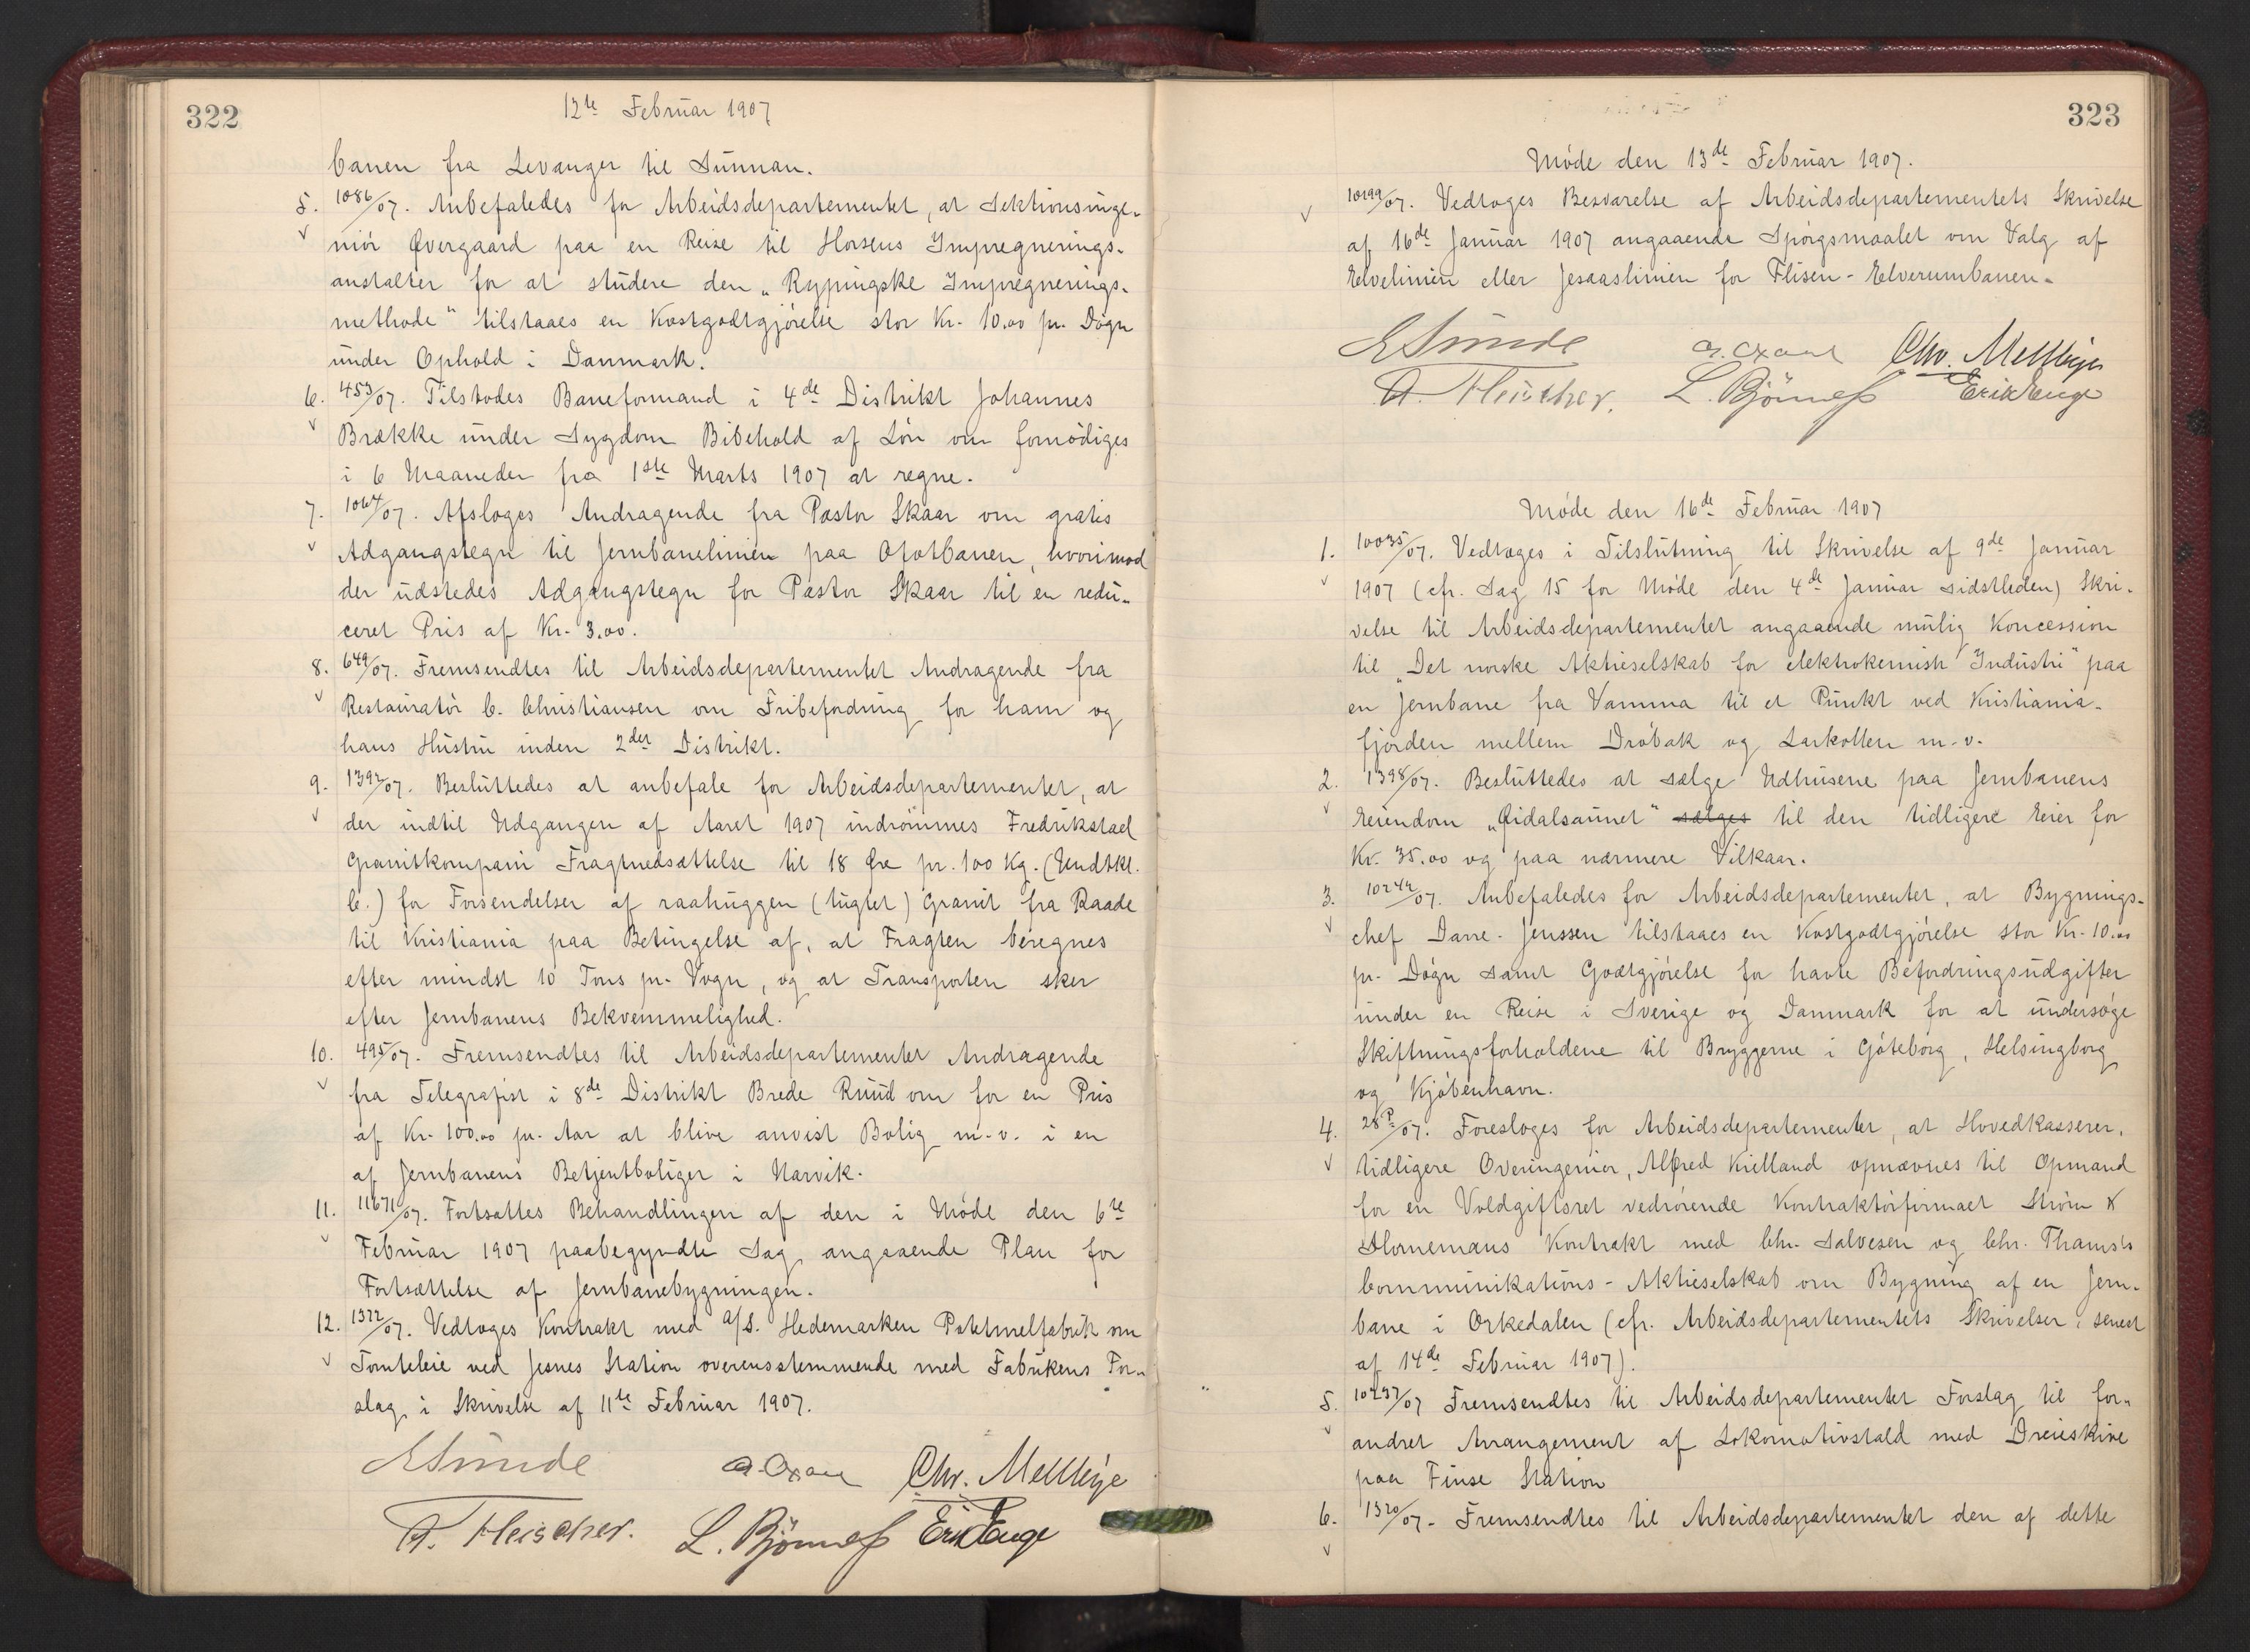 322
12te Februar 1907
banen fra Levanger til Sunnan.
5. 1086/07. Anbefaledes for Arbeidsdepartementet, at Sektionsinge-
niør Overgaard paa en Reise til Horsens Imprægnerings-
anstalter for at studere den „Rypingske Imprægnerings-
methode" tilstaaes en Kostgodtgjørelse stor Kr. 10.00 pr. Døgn
under Ophold i Danmark.
6. 453/07. Tilstodes Baneformand i 4de Distrikt Johannes
Brække under Sygdom Bibehold af Løn om fornødiges
i 6 Maaneder fra 1ste Marts 1907 at regne.
7. 1064/07. Afsloges Andragende fra Pastor Skaar om gratis
Adgangstegn til Jernbanelinien paa Ofotbanen, hvorimod
der udstedes Adgangstegn for Pastor Skaar til en redu-
ceret Pris af Kr. 3.00.
8. 649/07. Fremsendtes til Arbeidsdepartementet Andragende fra
Restauratør C. Christiansen om Fribefordring for ham og
hans Hustru inden 2det Distrikt.
9. 1392/07. Besluttedes at anbefale for Arbeidsdepartementet, at
der indtil Udgangen af Aaret 1907 indrømmes Fredrikstad
Granitkompani Fragtnedsættelse til 18 Øre pr. 100 Kg. (Undtkl.
C.) for Forsendelser af raahuggen (tugtet) Granit fra Raade
til Kristiania paa Betingelse af, at Fragten beregnes
efter mindst 10 Tons pr. Vogn, og at Transporten sker
efter Jernbanens Bekvemmelighed.
10. 495/07. Fremsendtes til Arbeidsdepartementet Andragende
fra Telegrafist i 8de Distrikt Brede Ruud om for en Pris
af Kr. 100.00 pr. Aar at blive anvist Bolig m.v. i en
af Jernbanens Betjentboliger i Narvik.
11. 11671/07. Fortsattes Behandlingen af den i Møde den 6te
Februar 1907 paabegyndte Sag angaaende Plan for
Fortsættelse af Jernbanebygningen.
12. 1322/07. Vedtoges Kontrakt med A/S. Hedemarken Potetmelfabrik om
Tomteleie ved Jesnes Station overensstemmende med Fabrikens For-
slag i Skrivelse af 11te Februar 1907.
E Sunde a. Oxaal Chr. Mellbye
F. Fleischer. L. Bjørnness Erik Enge
323
Møde den 13de Februar 1907.
10199/07. Vedtoges Besvarelse af Arbeidsdepartementets Skrivelse
af 16de Januar 1907 angaaende Spørgsmaalet om Valg af
Elvelinien eller Jesaaslinien for Flisen-Elverumbanen.
E Sunde a. Oxaal Chr. Mellbye
F. Fleischer. L. Bjørnness Erik Enge
Møde den 16de Februar 1907
1. 10035/07. Vedtoges i Tilslutning til Skrivelse af 9de Januar
1907 (cfr. Sag 15 for Møde den 4de Januar sidstleden) Skri-
velse til Arbeidsdepartementet angaaende mulig Koncession
til „Det norske Aktieselskab for elektrokemisk Industri" paa
en Jernbane fra Vamma til et Punkt ved Kristiania-
fjorden mellem Drøbak og Larkollen m.v.
2. 1398/07. Besluttedes at sælge Udhusene paa Jernbanens
Eiendom „Eidalsaunet" sælges til den tidligere Eier for
Kr. 35.00 og paa nærmere Vilkaar.
3. 10242/07. Anbefaledes for Arbeidsdepartementet, at Bygnings-
chef Darre-Jenssen tilstaaes en Kostgodtgjørelse stor Kr. 10.00
pr. Døgn samt Godtgjørelse for havte Befordringsudgifter
under en Reise i Sverige og Danmark for at undersøge
Skiftningsforholdene til Bryggerne i Gøteborg, Helsingborg
og Kjøbenhavn.
4. 28P/07. Foresloges for Arbeidsdepartementet, at Hovedkasserer,
tidligere Overingeniør, Alfred Kielland opnævnes til Opmand
for en Voldgiftsret vedrørende Kontraktørfirmaet Strøm &
Hornemans Kontrakt med Chr. Salvesen og Chr. Thams's
Communikations-Aktieselskab om Bygning af en Jern-
bane i Orkedalen (cfr. Arbeidsdepartementets Skrivelser, senest
af 14de Februar 1907).
5. 10237/07 Fremsendtes til Arbeidsdepartementet Forslag til for-
andret Arrangement af Lokomotivstald med Dreieskive
paa Finse Station
6. 1320/07. Fremsendtes til Arbeidsdepartementet den af dette